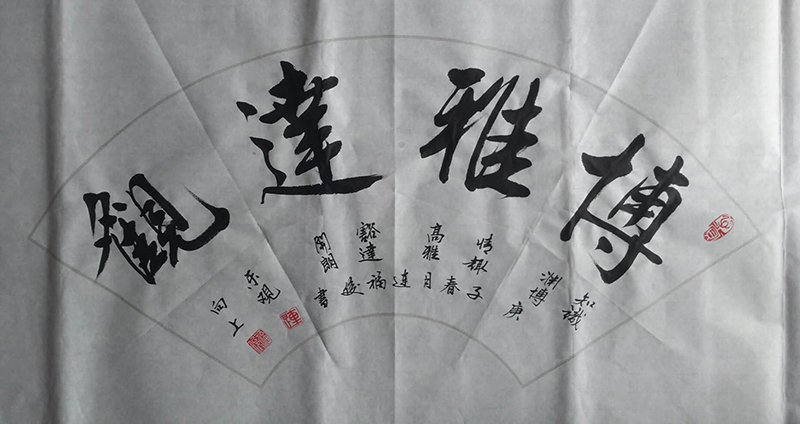 博雅達觀
知識
渊博
情趣
高雅
豁達
開朗
乐观
向上
庚子春月连福書